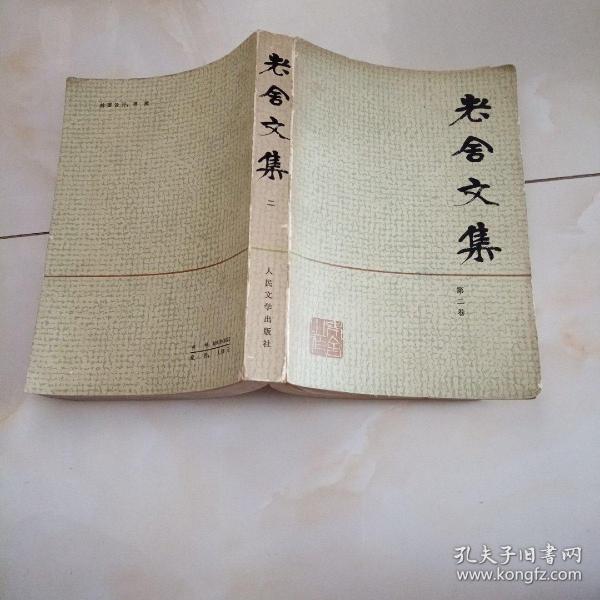 老舍文集
第二卷
老舍文集
二
人民文学出版社
孔夫子旧书网
www.kongfz.com